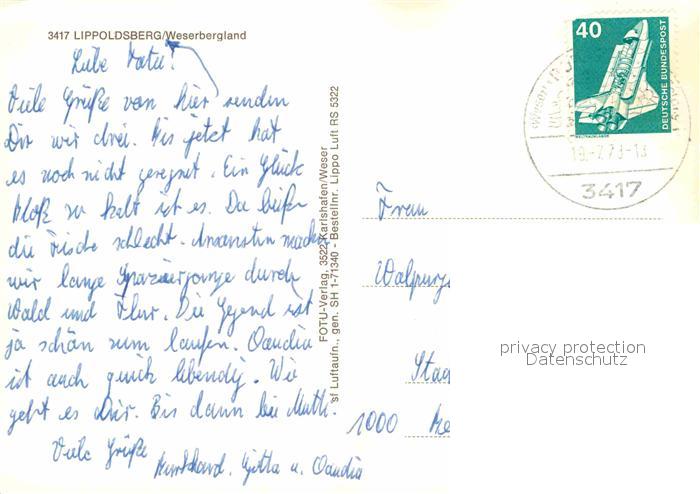 3417 LIPPOLDSBERG/Weserbergland
Liebe Vatu!
Viele Grüße von hier senden
Dir wir drei. Bis jetzt hat
es noch nicht geregnet. Ein Glück
bloß so kalt ist es. Da beißen
die Fische schlecht. Ansonsten machen
wir lange Spaziergänge durch
Wald und Flur. Die Gegend ist
ja schön zum laufen. Claudia
ist auch quick lebendig. Wie
geht es Dir. Bis dann bei Mutti.
Viele Grüße
Burkhard, Gitta u. Claudia
FOTU-Verlag, 3522 Karlshafen/Weser
sf Luftaufn., gen. SH 1-71340 - Bestellnr. Lippo Luft RS 5322
40
DEUTSCHE BUNDESPOST
3417
Frau
1000
privacy protection
Datenschutz